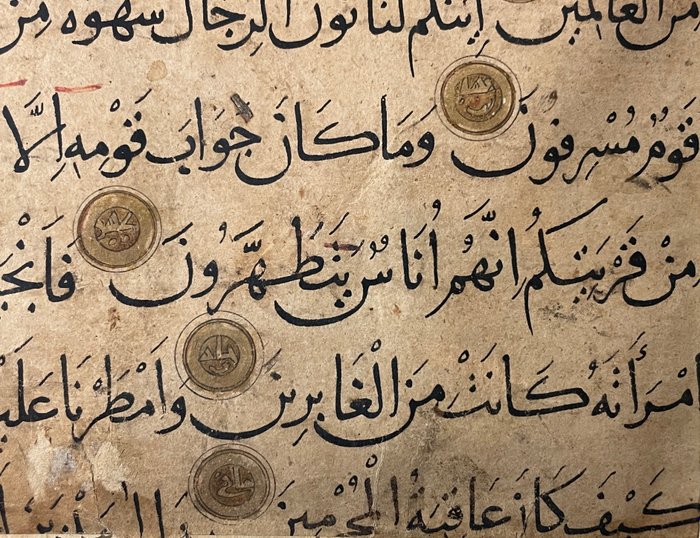 مِنَ الْعَالَمِينَ اِئنَّكُمْ لَتَاتُونَ الرِّجَالَ شَهْوَةً مِنْ
قَوْمٌ مُسْرِفُونَ وَمَا كَانَ جَوَابَ قَوْمِهِ اِلَّا
مِنْ قَرْيَتِكُمْ اِنَّهُمْ اُنَاسٌ يَتَطَهَّرُونَ فَاَنْجَ
امْرَأَتَهُ كَانَتْ مِنَ الْغَابِرِينَ وَاَمْطَرْنَا عَلَيْ
كَيْفَ كَانَ عَاقِبَةُ الْمُجْرِمِينَ